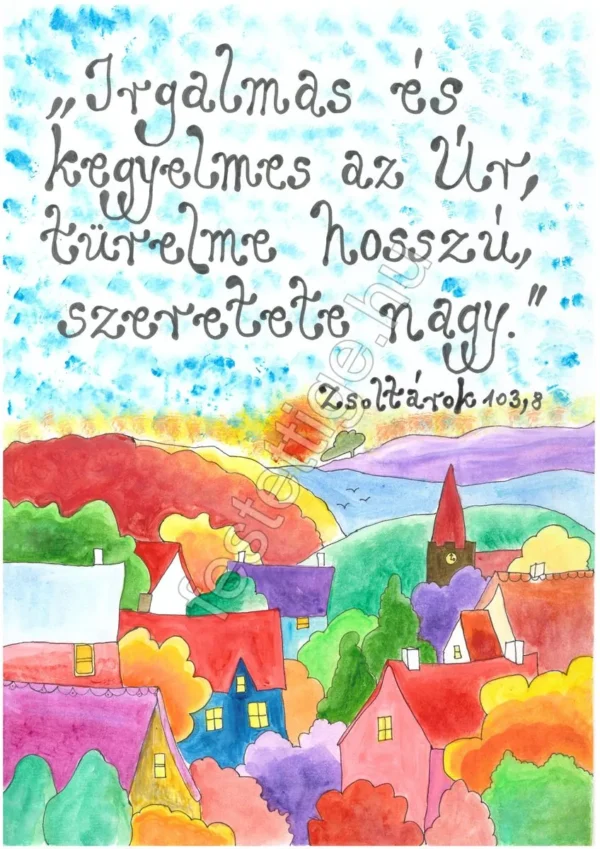 „Irgalmas és
kegyelmes az Úr,
türelme hosszú,
szeretete nagy."
Zsoltárok 103,8